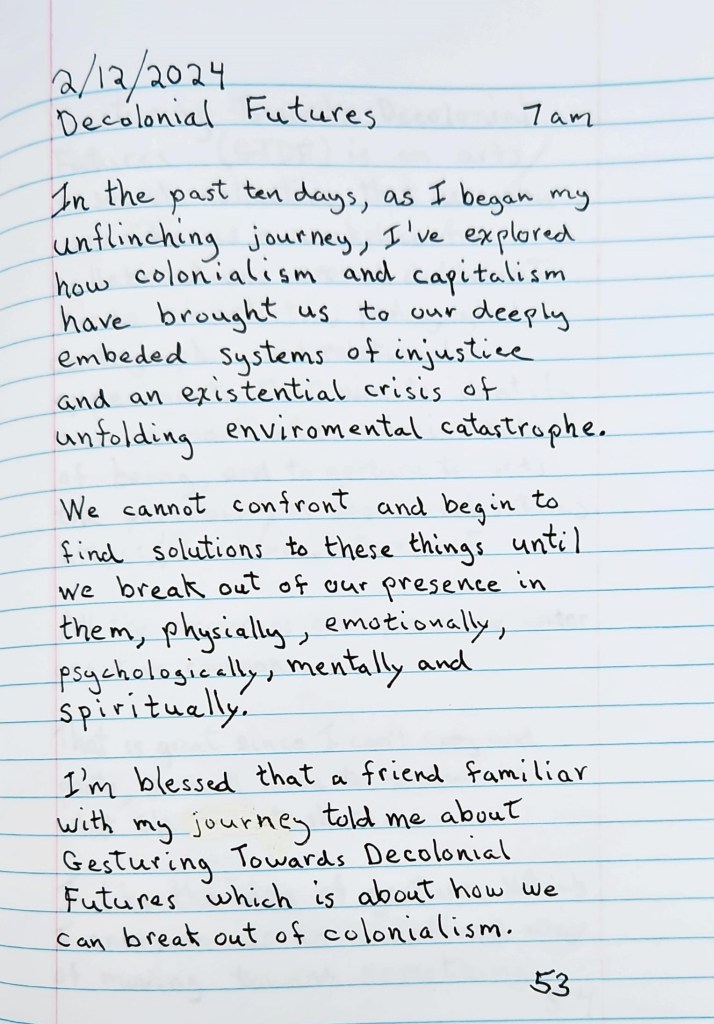 2/12/2024
Decolonial Futures 7am
In the past ten days, as I began my
unflinching journey, I've explored
how colonialism and capitalism
have brought us to our deeply
embeded systems of injustice
and an existential crisis of
unfolding enviromental catastrophe.
We cannot confront and begin to
find solutions to these things until
we break out of our presence in
them, physially, emotionally,
psychologically, mentally and
spiritually.
I'm blessed that a friend familiar
with my journey told me about
Gesturing Towards Decolonial
Futures which is about how we
can break out of colonialism.
53